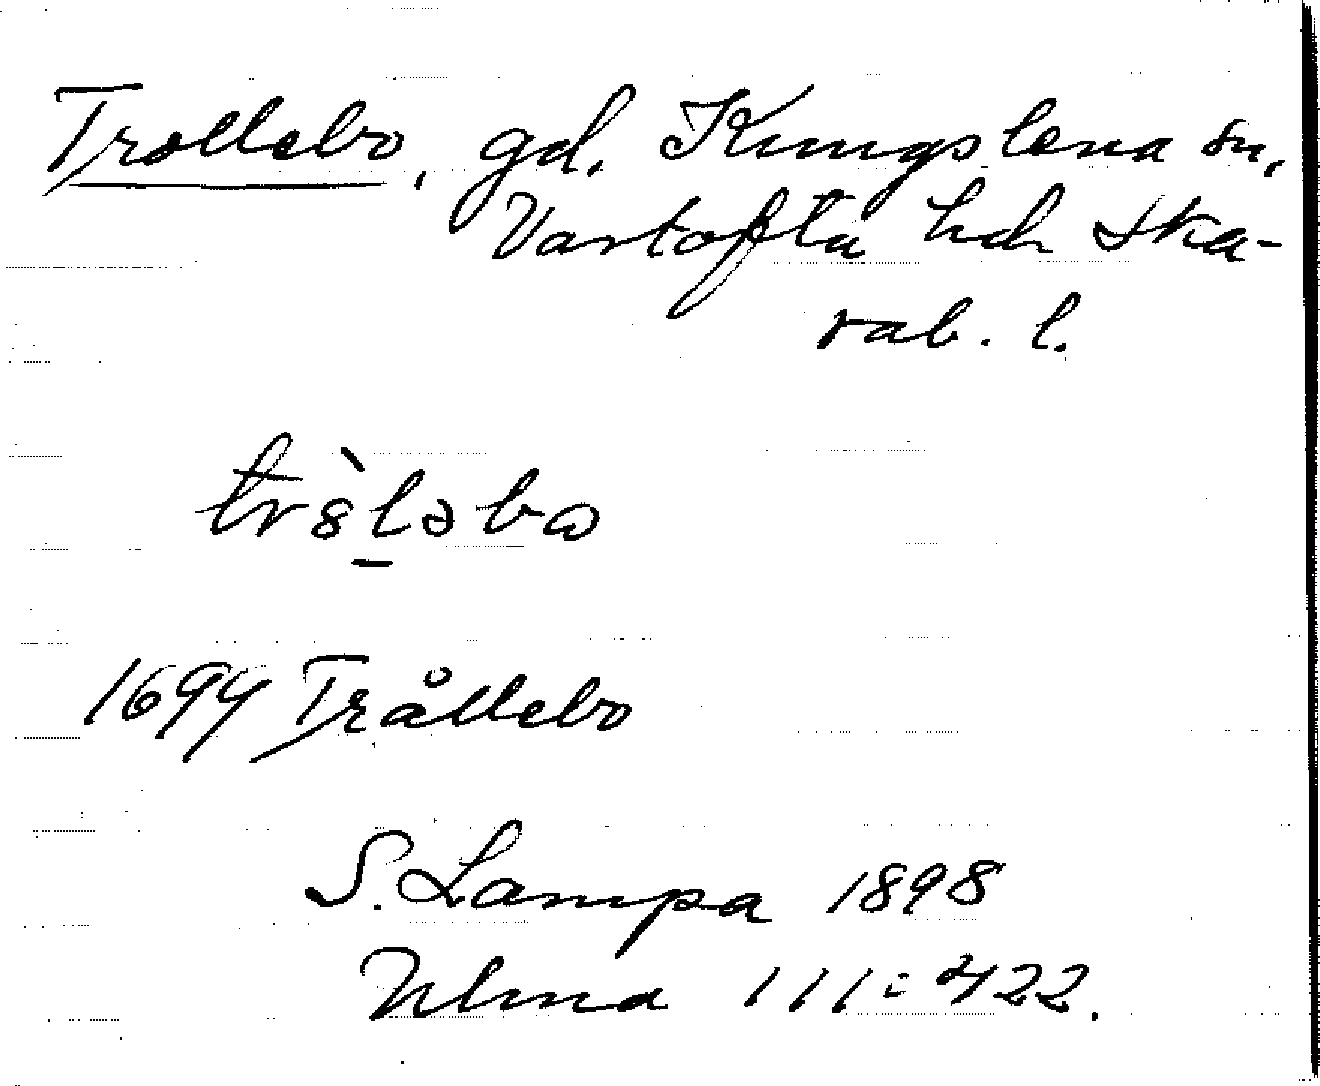 Trollebo, gd. Kungslena sn,
Vartofta hd Ska-
rab. l.
1699 Trållebo
S. Lampa 1898
111:422.